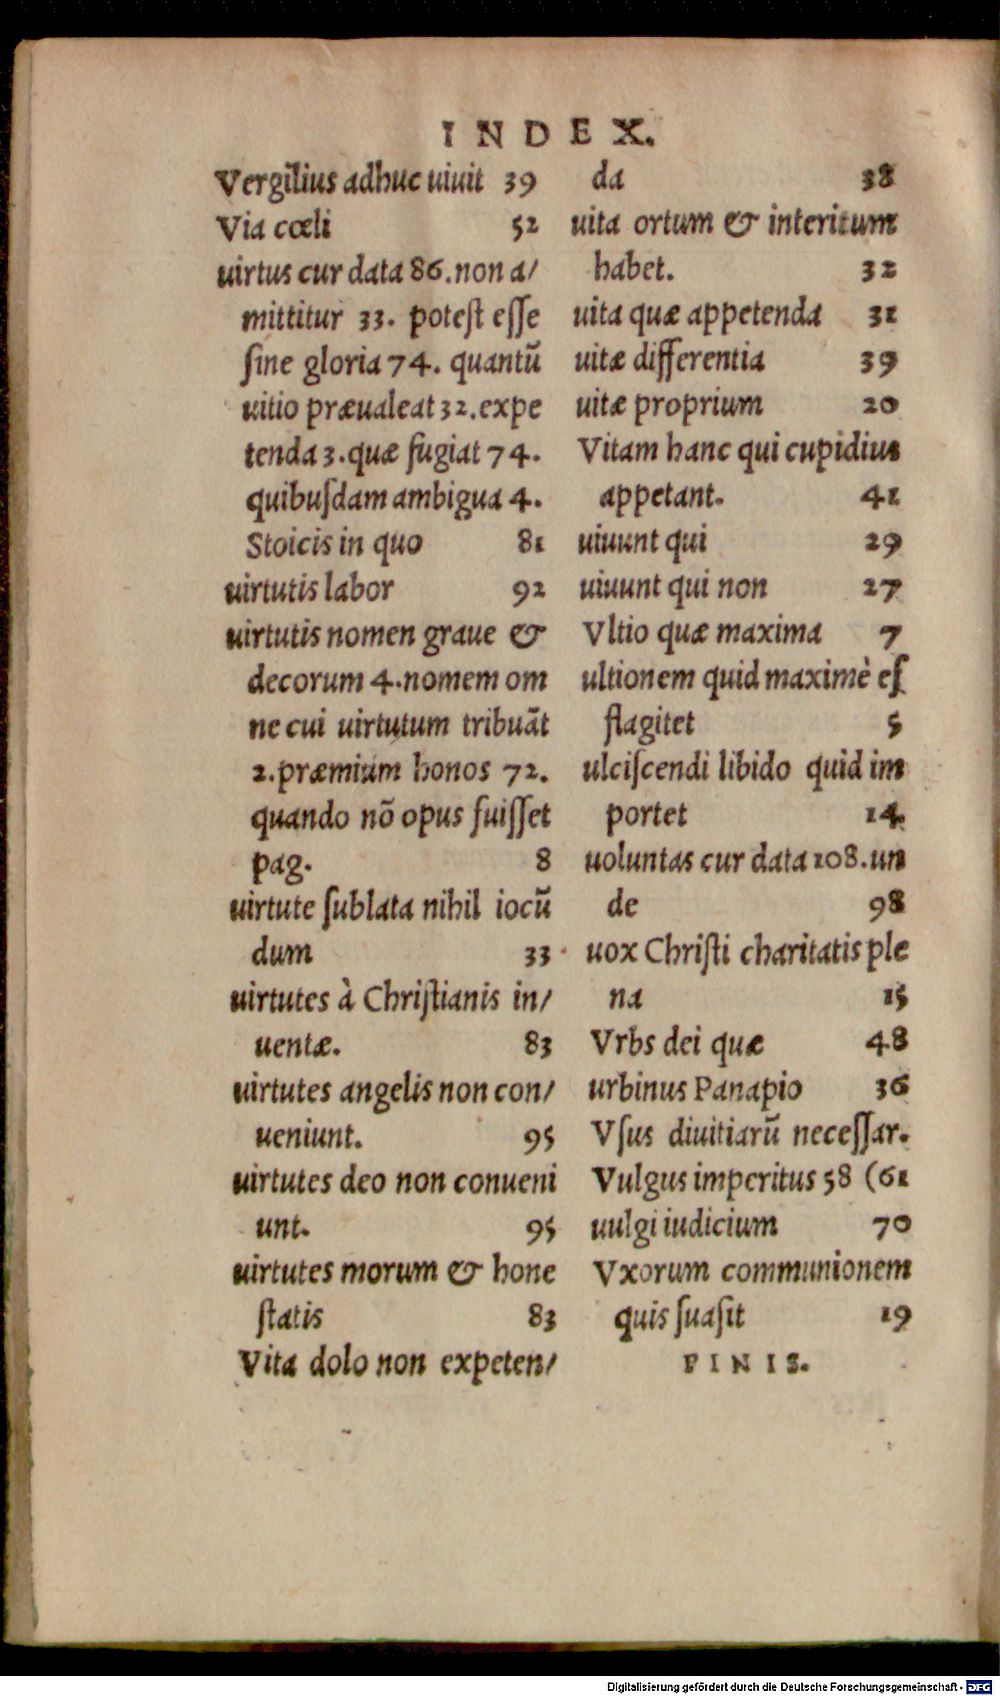 INDEX.
Vergilius adhuc uiuit 39
Via cœli 52
uirtus cur data 86. non a/
mittitur 33. potest esse
sine gloria 74. quantũ
uitio præualeat 32. expe
tenda 3. quæ fugiat 74.
quibusdam ambigua 4.
Stoicis in quo 81
uirtutis labor 92
uirtutis nomen graue &
decorum 4. nomem om
ne cui uirtutum tribuãt
2. præmium honos 72.
quando nõ opus fuisset
pag. 8
uirtute sublata nihil iocũ
dum 33
uirtutes à Christianis in/
uentæ. 83
uirtutes angelis non con/
ueniunt. 95
uirtutes deo non conueni
unt. 95
uirtutes morum & hone
statis 83
Vita dolo non expeten/
da 38
uita ortum & interitum
habet. 32
uita quæ appetenda 31
uitæ differentia 39
uitæ proprium 20
Vitam hanc qui cupidius
appetant. 41
uiuunt qui 29
uiuunt qui non 27
Vltio quæ maxima 7
ultionem quid maximè ef
flagitet 5
ulciscendi libido quid im
portet 14.
uoluntas cur data 108. un
de 98
uox Christi charitatis ple
na 15
Vrbs dei quæ 48
urbinus Panapio 36
Vsus diuitiarũ necessar.
Vulgus imperitus 58 (61
uulgi iudicium 70
Vxorum communionem
quis suasit 19
FINIS.
Digitalisierung gefördert durch die Deutsche Forschungsgemeinschaft - DFG